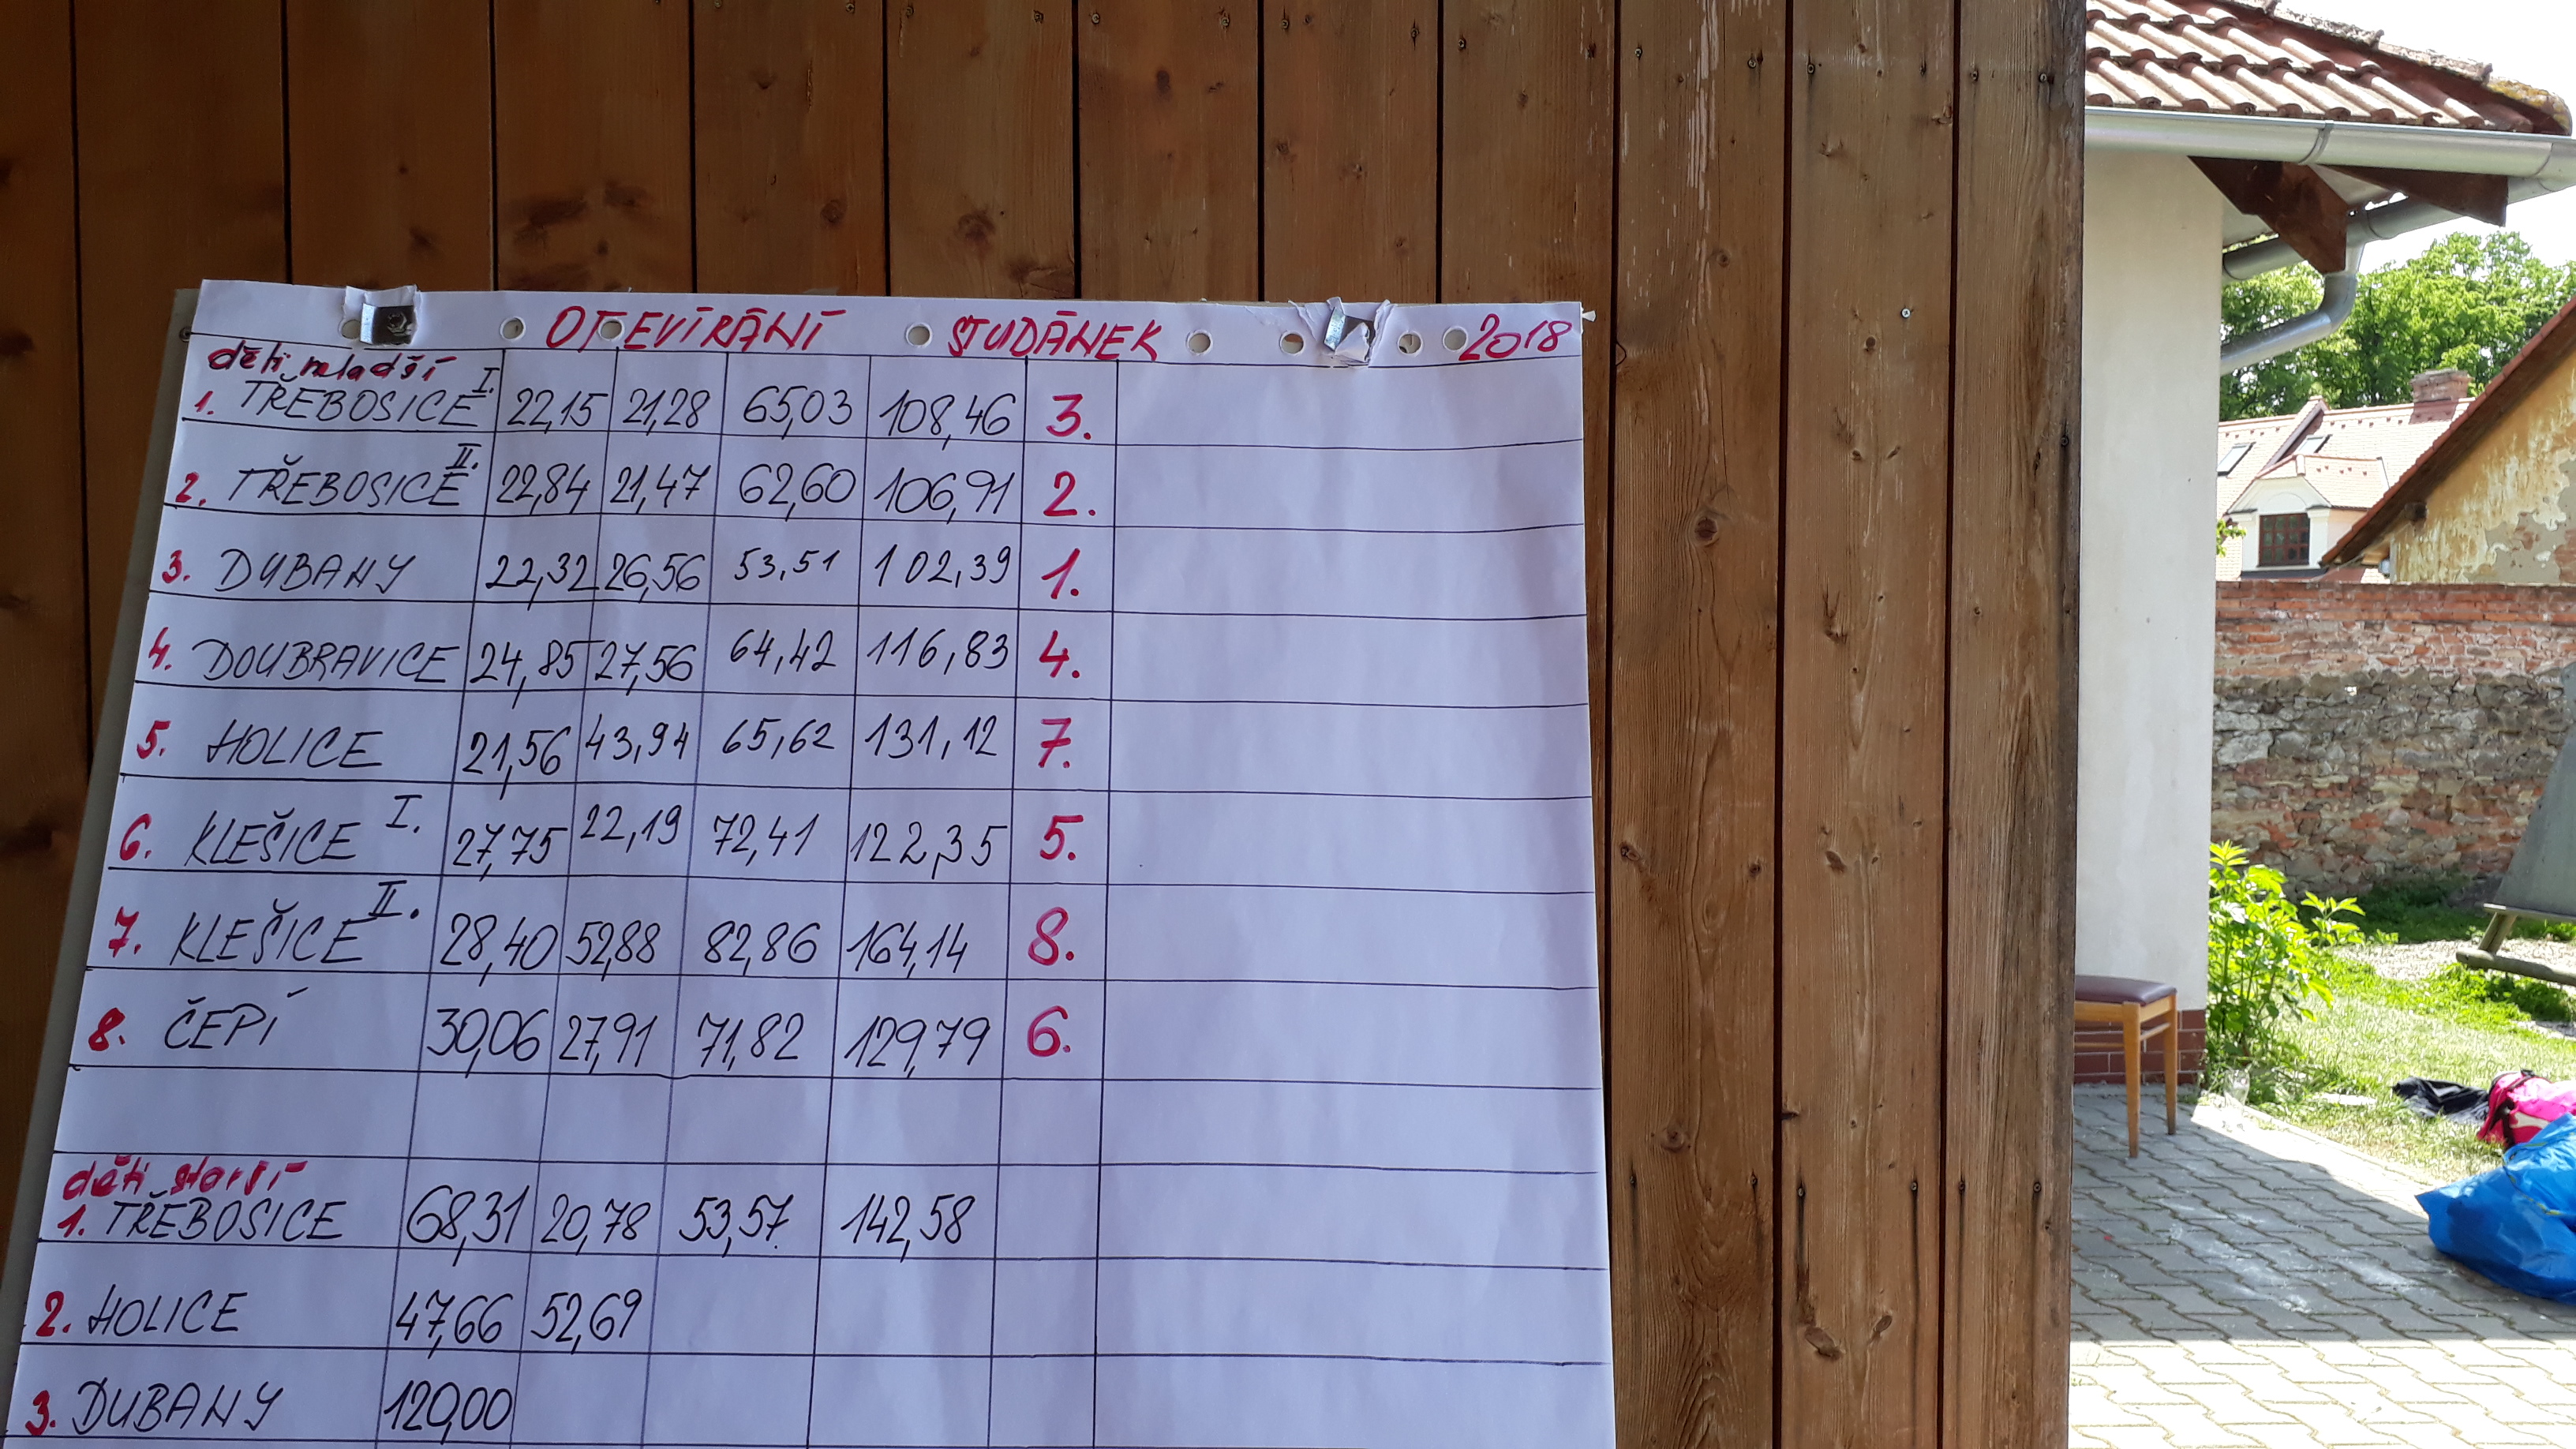 OTEVÍRÁNÍ STUDÁNEK 2018
děti mladší
1. TŘEBOSICE I. 22,15 21,28 65,03 108,46 3.
2. TŘEBOSICE II. 22,84 21,47 62,60 106,91 2.
3. DUBANY 22,32 26,56 53,51 102,39 1.
4. DOUBRAVICE 24,85 27,56 64,42 116,83 4.
5. HOLICE 21,56 43,94 65,62 131,12 7.
6. KLEŠICE I. 27,75 22,19 72,41 122,35 5.
7. KLEŠICE II. 28,40 52,88 82,86 164,14 8.
8. ČEPÍ 30,06 27,91 71,82 129,79 6.
děti starší
1. TŘEBOSICE 68,31 20,78 53,57 142,58
2. HOLICE 47,66 52,69
3. DUBANY 120,00